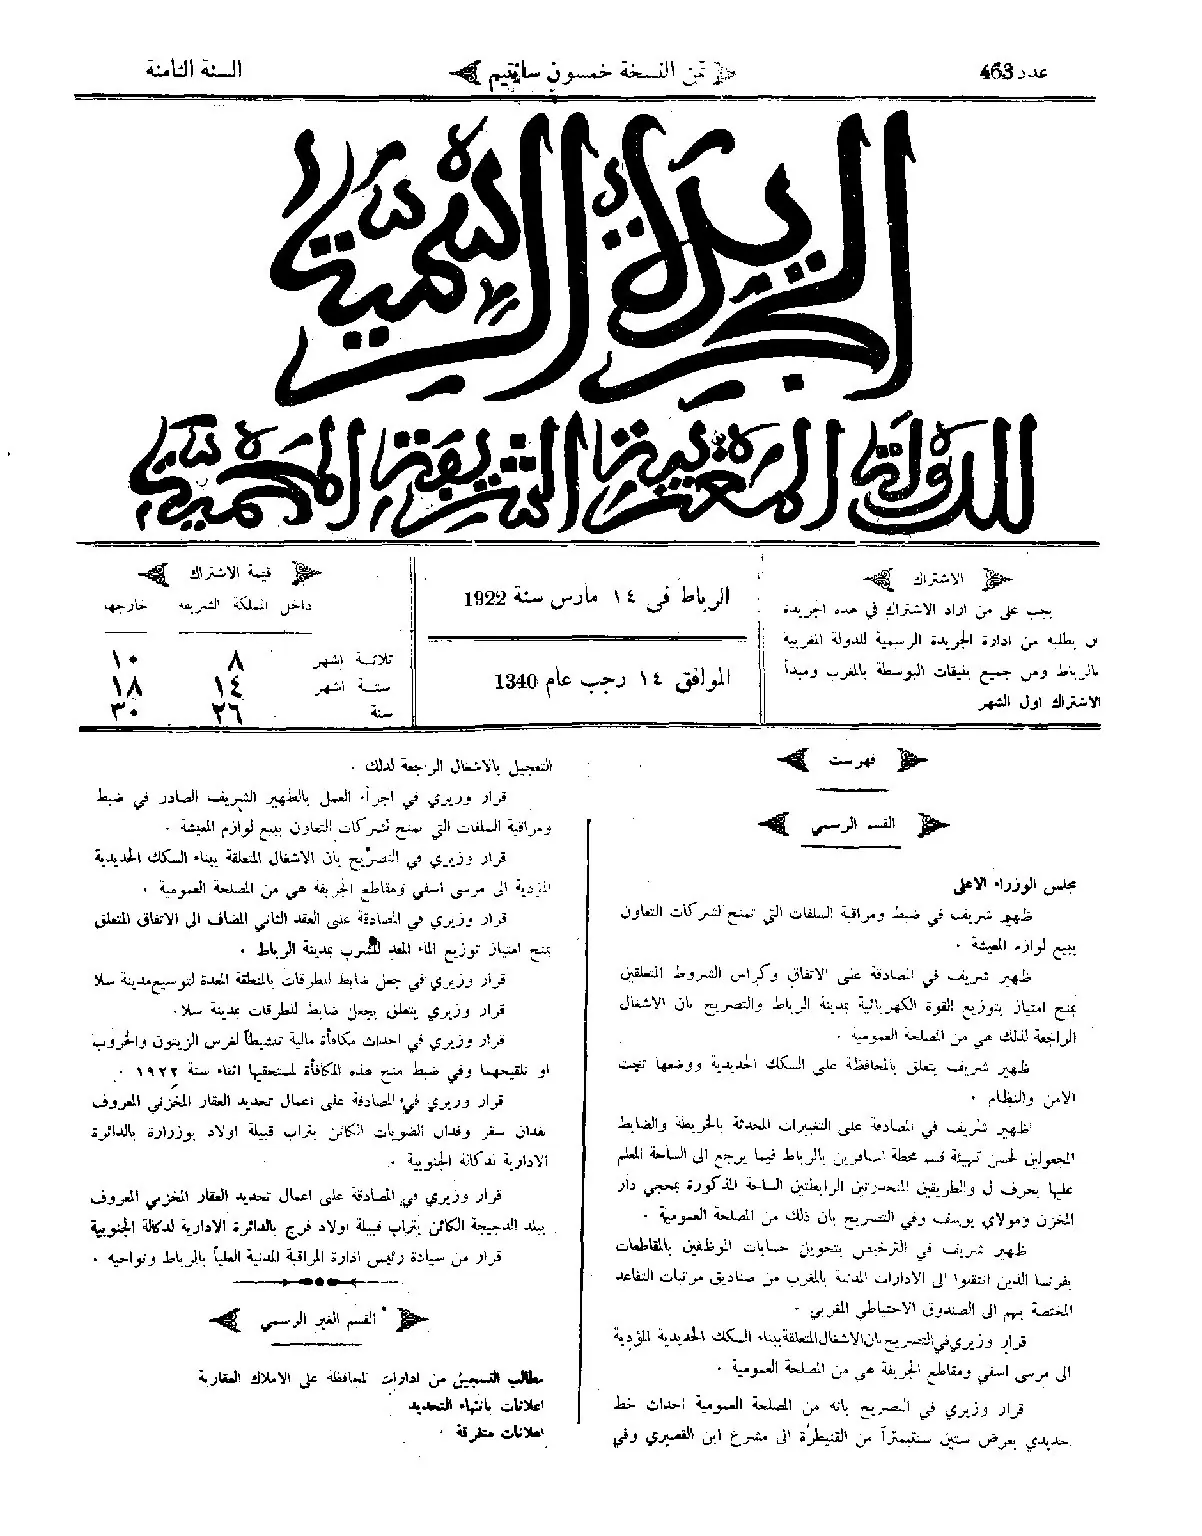 عدد 463
ثمن النسخة خمسون سانتيم
السنة الثامنة
الجريدة الرسمية
للدولة المغربية الشريفة المحمية
الاشتراك
يجب على من اراد الاشتراك في هذه الجريدة
ان يطلبه من ادارة الجريدة الرسمية للدولة المغربية
بالرباط ومن جميع بنيقات البوسطة بالمغرب ومبدأ
الاشتراك اول الشهر
الرباط في ١٤ مارس سنة 1922
الموافق ١٤ رجب عام 1340
قيمة الاشتراك
داخل المملكة الشريفة خارجها
ثلاثة اشهر ٨ ١٠
ستة اشهر ١٤ ١٨
سنة ٢٦ ٣٠
فهرست
القسم الرسمي
مجلس الوزراء الاعلى
ظهير شريف في ضبط ومراقبة السلفات التي تمنح لشركات التعاون
ببيع لوازم المعيشة ٠
ظهير شريف في المصادقة على الاتفاق وكراس الشروط المتعلقين
بمنح امتياز بتوزيع القوة الكهربائية بمدينة الرباط والتصريح بان الاشغال
الراجعة لذلك هي من المصلحة العمومية ٠
ظهير شريف يتعلق بالمحافظة على السكك الحديدية ووضعها تحت
الامن والنظام ٠
ظهير شريف في المصادقة على التغييرات المحدثة بالخريطة والضابط
المجعولين لحسن تهيئة قسم محطة المسافرين بالرباط فيما يرجع الى الساحة المعلم
عليها بحرف ل والطريقين المنحدرتين الرابطتين الساحة المذكورة بمحجي دار
المخزن ومولاي يوسف وفي التصريح بان ذلك من المصلحة العمومية ٠
ظهير شريف في الترخيص بتحويل حسابات الموظفين بالمقاطعات
بفرنسا الذين انتقلوا الى الادارات المدنية بالمغرب من صناديق مرتبات التقاعد
المختصة بهم الى الصندوق الاحتياطي المغربي ٠
قرار وزيري في التصريح بان الاشغال المتعلقة ببناء السكك الحديدية المؤدية
الى مرسى اسفي ومقاطع الجريفة هي من المصلحة العمومية ٠
قرار وزيري في التصريح بانه من المصلحة العمومية احداث خط
حديدي بعرض ستين سنتيمتراً من القنيطرة الى مشرع ابن القصيري وفي
التعجيل بالاشغال الراجعة لذلك ٠
قرار وزيري في اجراء العمل بالظهير الشريف الصادر في ضبط
ومراقبة السلفات التي تمنح لشركات التعاون ببيع لوازم المعيشة ٠
قرار وزيري في التصريح بان الاشغال المتعلقة ببناء السكك الحديدية
المؤدية الى مرسى اسفي ومقاطع الجريفة هي من المصلحة العمومية ٠
قرار وزيري في المصادقة على العقد الثاني المضاف الى الاتفاق المتعلق
بمنح امتياز توزيع الماء المعد للشرب بمدينة الرباط ٠
قرار وزيري في جعل ضابط للطرقات بالمنطقة المعدة لتوسيع مدينة سلا
قرار وزيري يتعلق بجعل ضابط للطرقات بمدينة سلا ٠
قرار وزيري في احداث مكافأة مالية تنشيطاً لغرس الزيتون والخروب
او تلقيحهما وفي ضبط منح هذه المكافأة لمستحقيها اثناء سنة ١٩٢٢ ٠
قرار وزيري في المصادقة على اعمال تحديد العقار المخزني المعروف
بفدان سفر وفدان الضويات الكائن بتراب قبيلة اولاد بوزرارة بالدائرة
الادارية لدكالة الجنوبية ٠
قرار وزيري في المصادقة على اعمال تحديد العقار المخزني المعروف
ببلد الدحيجة الكائن بتراب قبيلة اولاد فرج بالدائرة الادارية لدكالة الجنوبية
قرار من سيادة رئيس ادارة المراقبة المدنية العليا بالرباط ونواحيه ٠
القسم الغير الرسمي
مطالب التسجيل من ادارات المحافظة على الاملاك العقارية
اعلانات بانتهاء التحديد
اعلانات متفرقة ٠